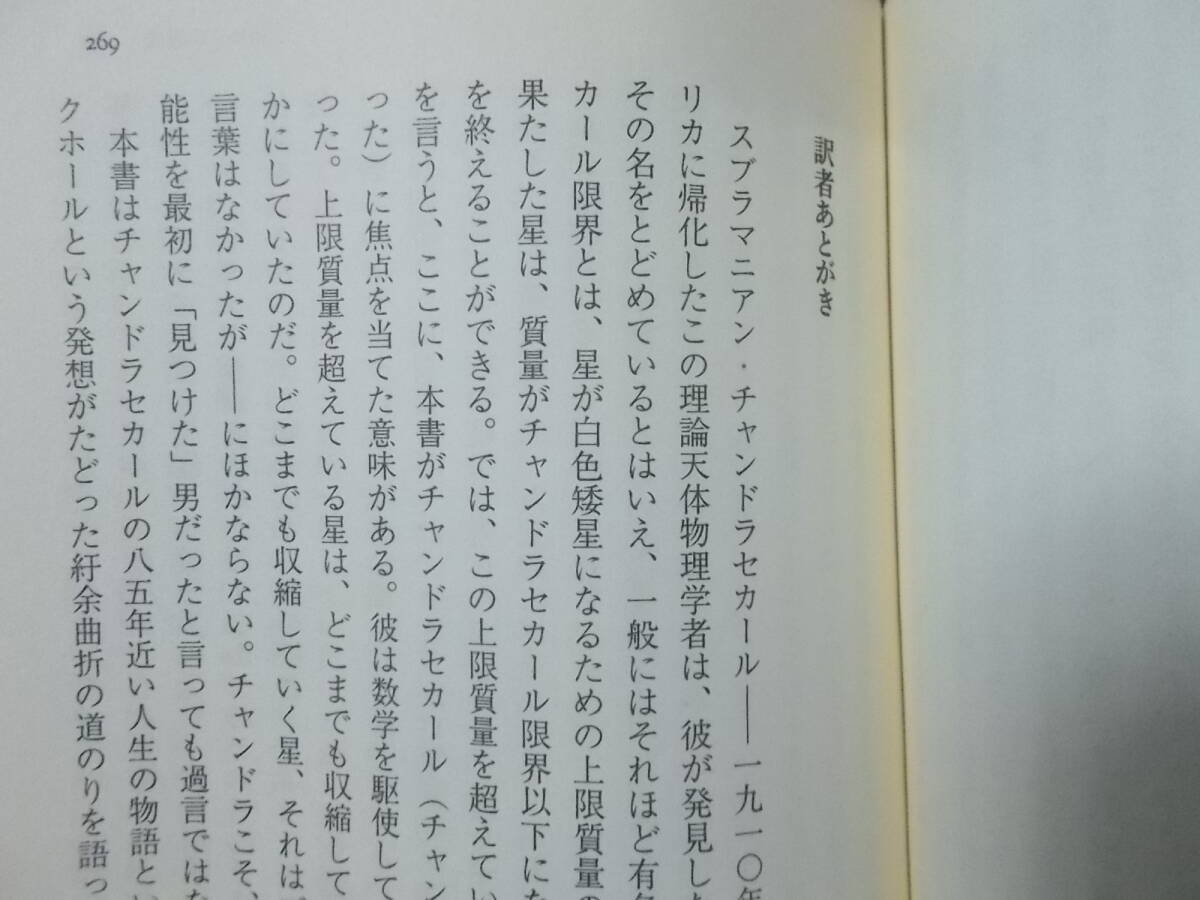 269
訳者あとがき
スブラマニアン・チャンドラセカール――一九一〇年
リカに帰化したこの理論天体物理学者は、彼が発見した
その名をとどめているとはいえ、一般にはそれほど有名
カール限界とは、星が白色矮星になるための上限質量の
果たした星は、質量がチャンドラセカール限界以下にな
を終えることができる。では、この上限質量を超えてい
を言うと、ここに、本書がチャンドラセカール（チャン
った）に焦点を当てた意味がある。彼は数学を駆使して
った。上限質量を超えている星は、どこまでも収縮して
かにしていたのだ。どこまでも収縮していく星、それは
言葉はなかったが――にほかならない。チャンドラこそ、
能性を最初に「見つけた」男だったと言っても過言ではな
本書はチャンドラセカールの八五年近い人生の物語とい
クホールという発想がたどった紆余曲折の道のりを語っ